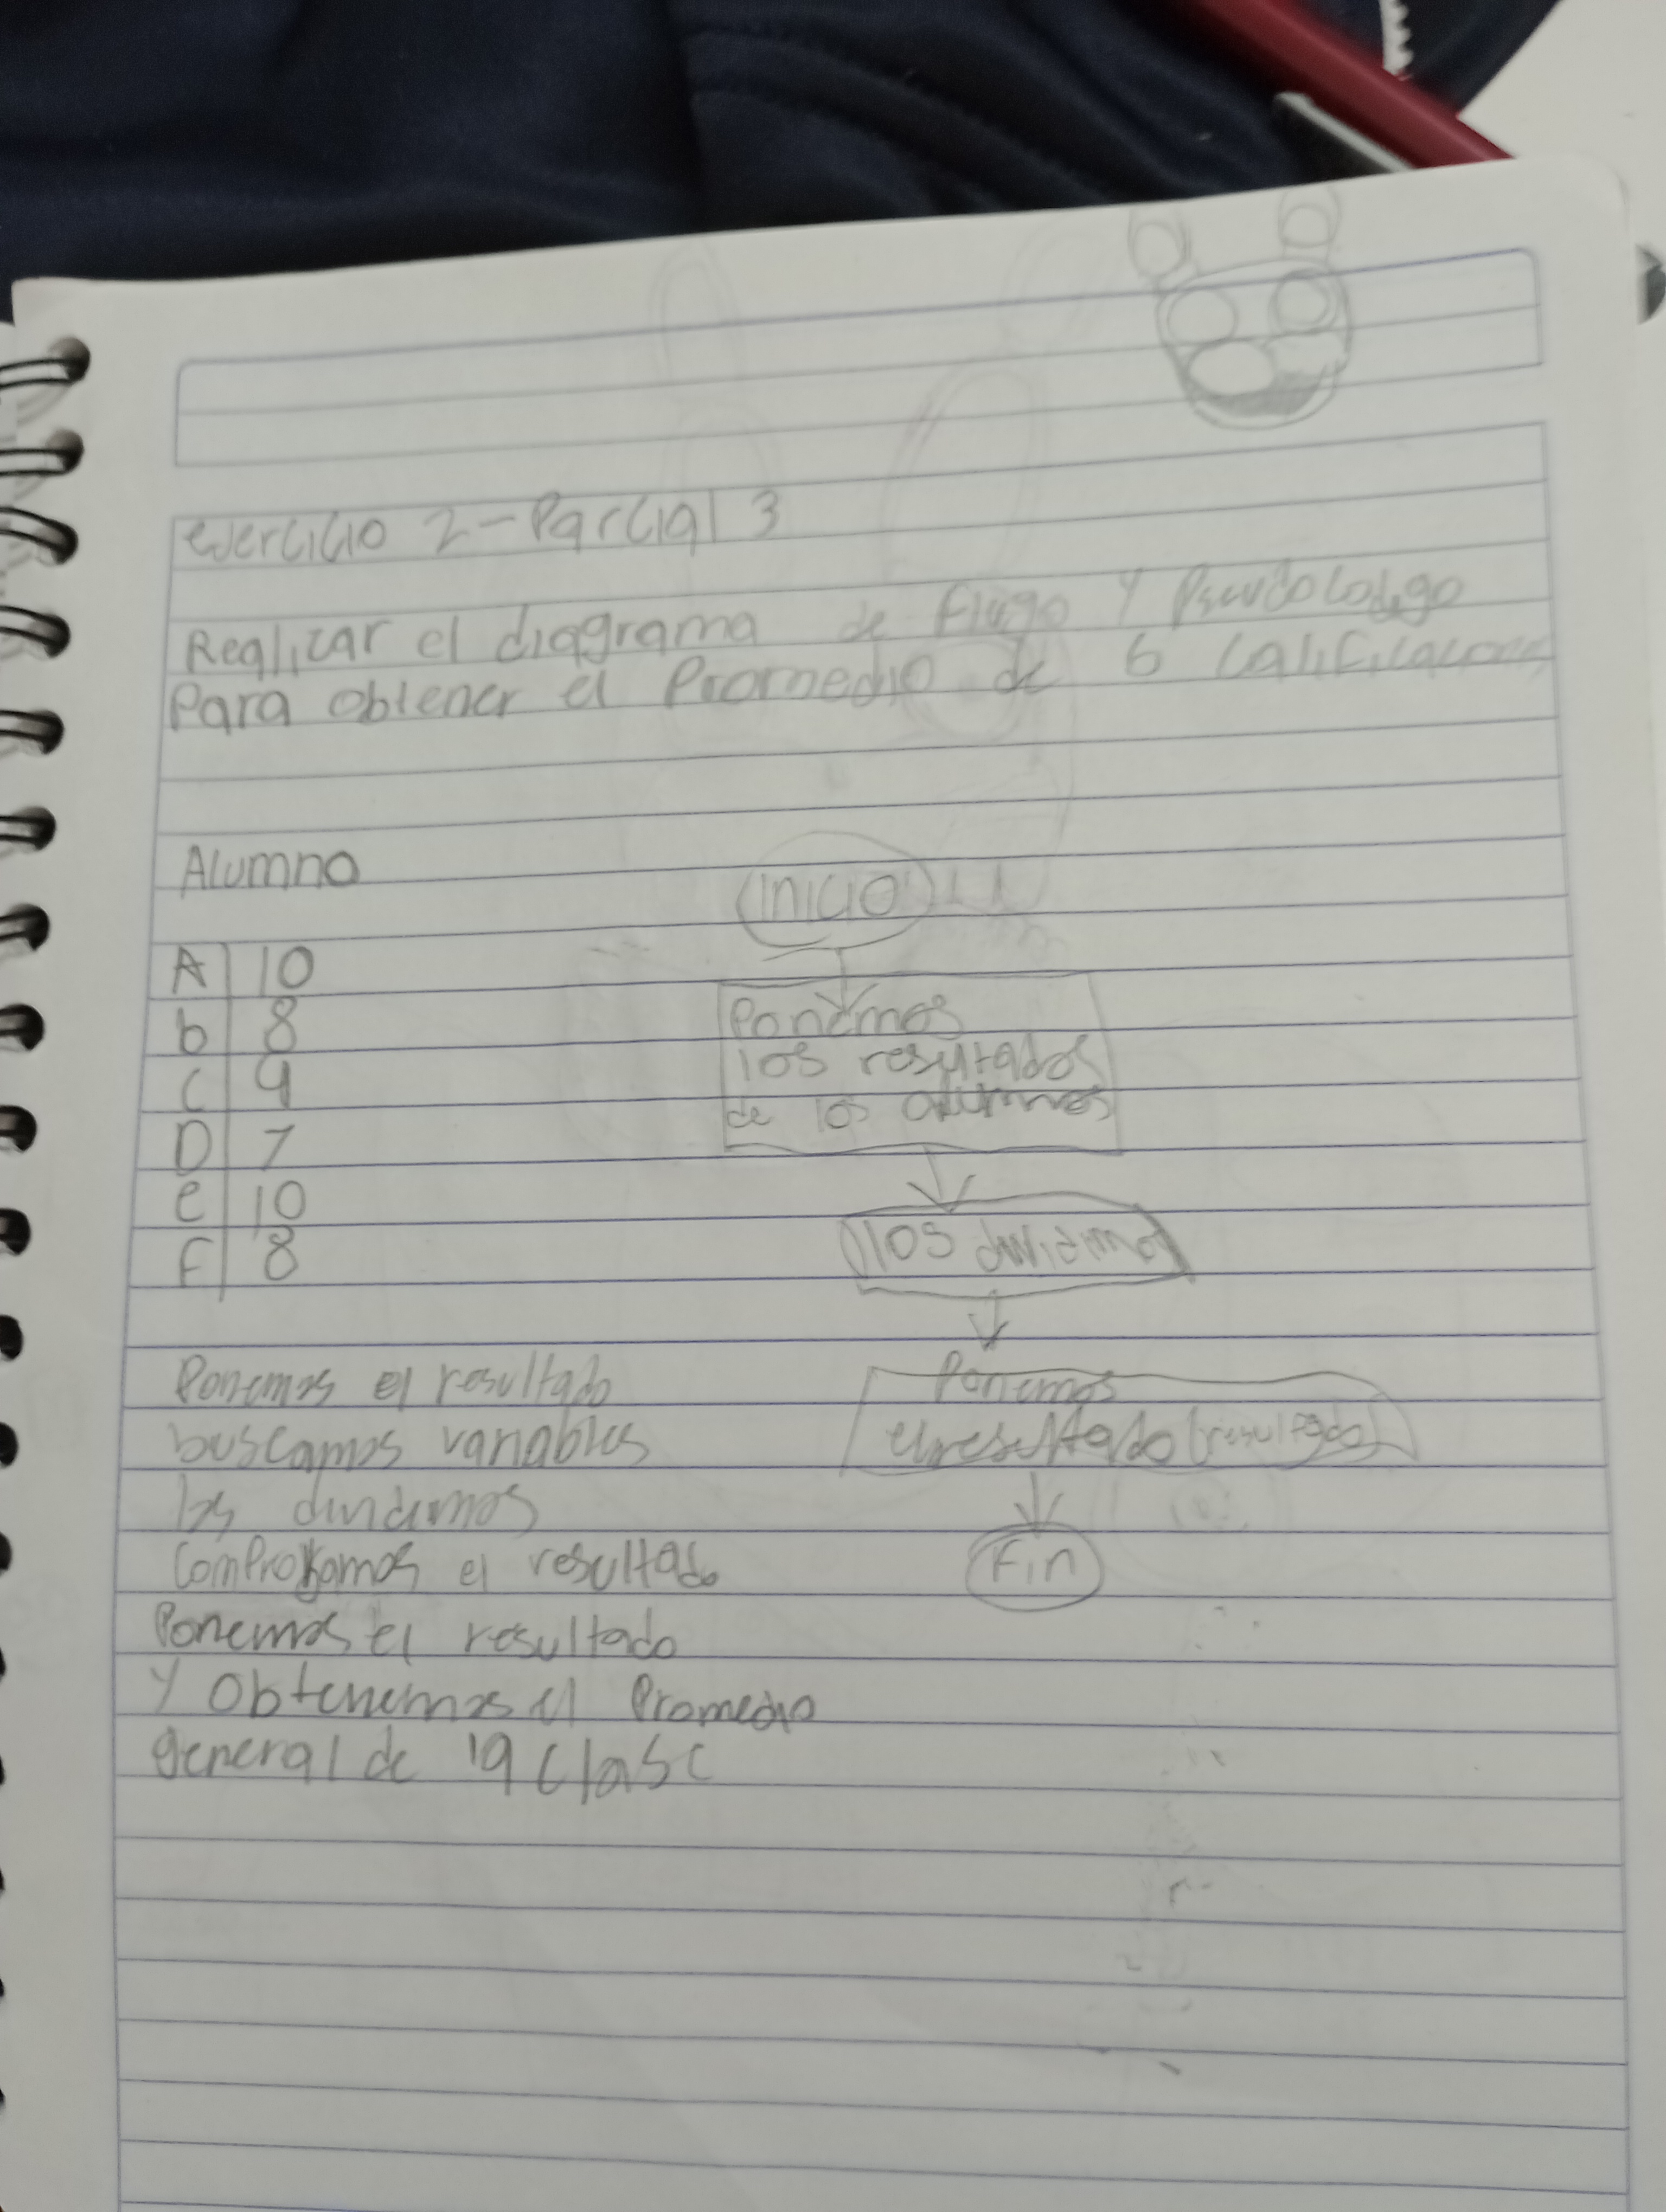 ejercicio 2 - Parcial 3
Realizar el diagrama de flugo y Pseudocodigo
Para obtener el Promedio de 6 calificaciones
Alumno
A 10
b 8
C 9
D 7
e 10
F 8
Ponemos el resultado
buscamos variables
los dividimos
Comprobamos el resultado
Ponemos el resultado
Y obtenemos el Promedio
general de la clase
inicio
Ponemos
los resultados
de los alumnos
los dividimos
Ponemos
el resultado (resultado)
Fin